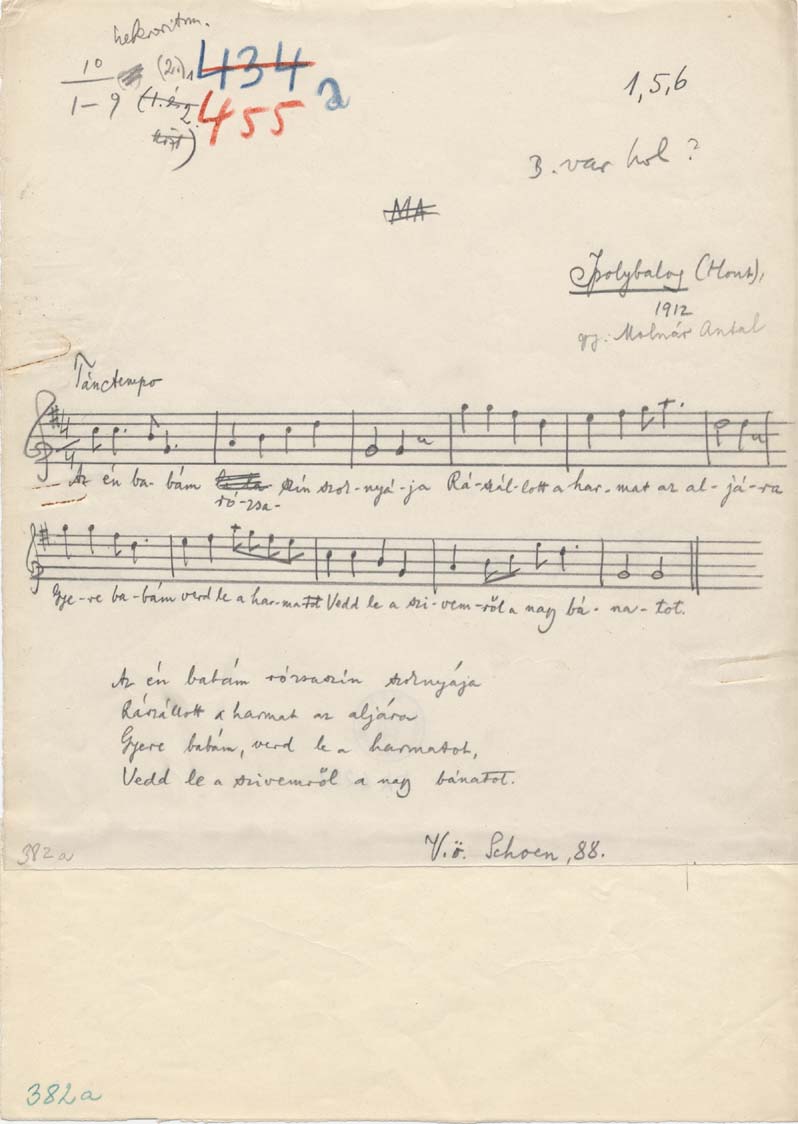 1°
(2.)
434
1–9
455
a
1,5,6
B. var hol?
MA
Ipolybalog (Hont),
1912
gy: Molnár Antal
Tánctempo
4
4
Az én ba- bám szín szok-nyá-ja Rá-szál-lott a har-mat az al-já-ra
ró-zsa-
Gye-re ba-bám verd le a har-matot Vedd le a szi-vem-ről a nagy bá-na-tot.
Az én babám rózsaszín szoknyája
Rászállott a harmat az aljára
Gyere babám, verd le a harmatot,
Vedd le a szivemről a nagy bánatot.
382a
V.ö. Schoen, 88.
382a